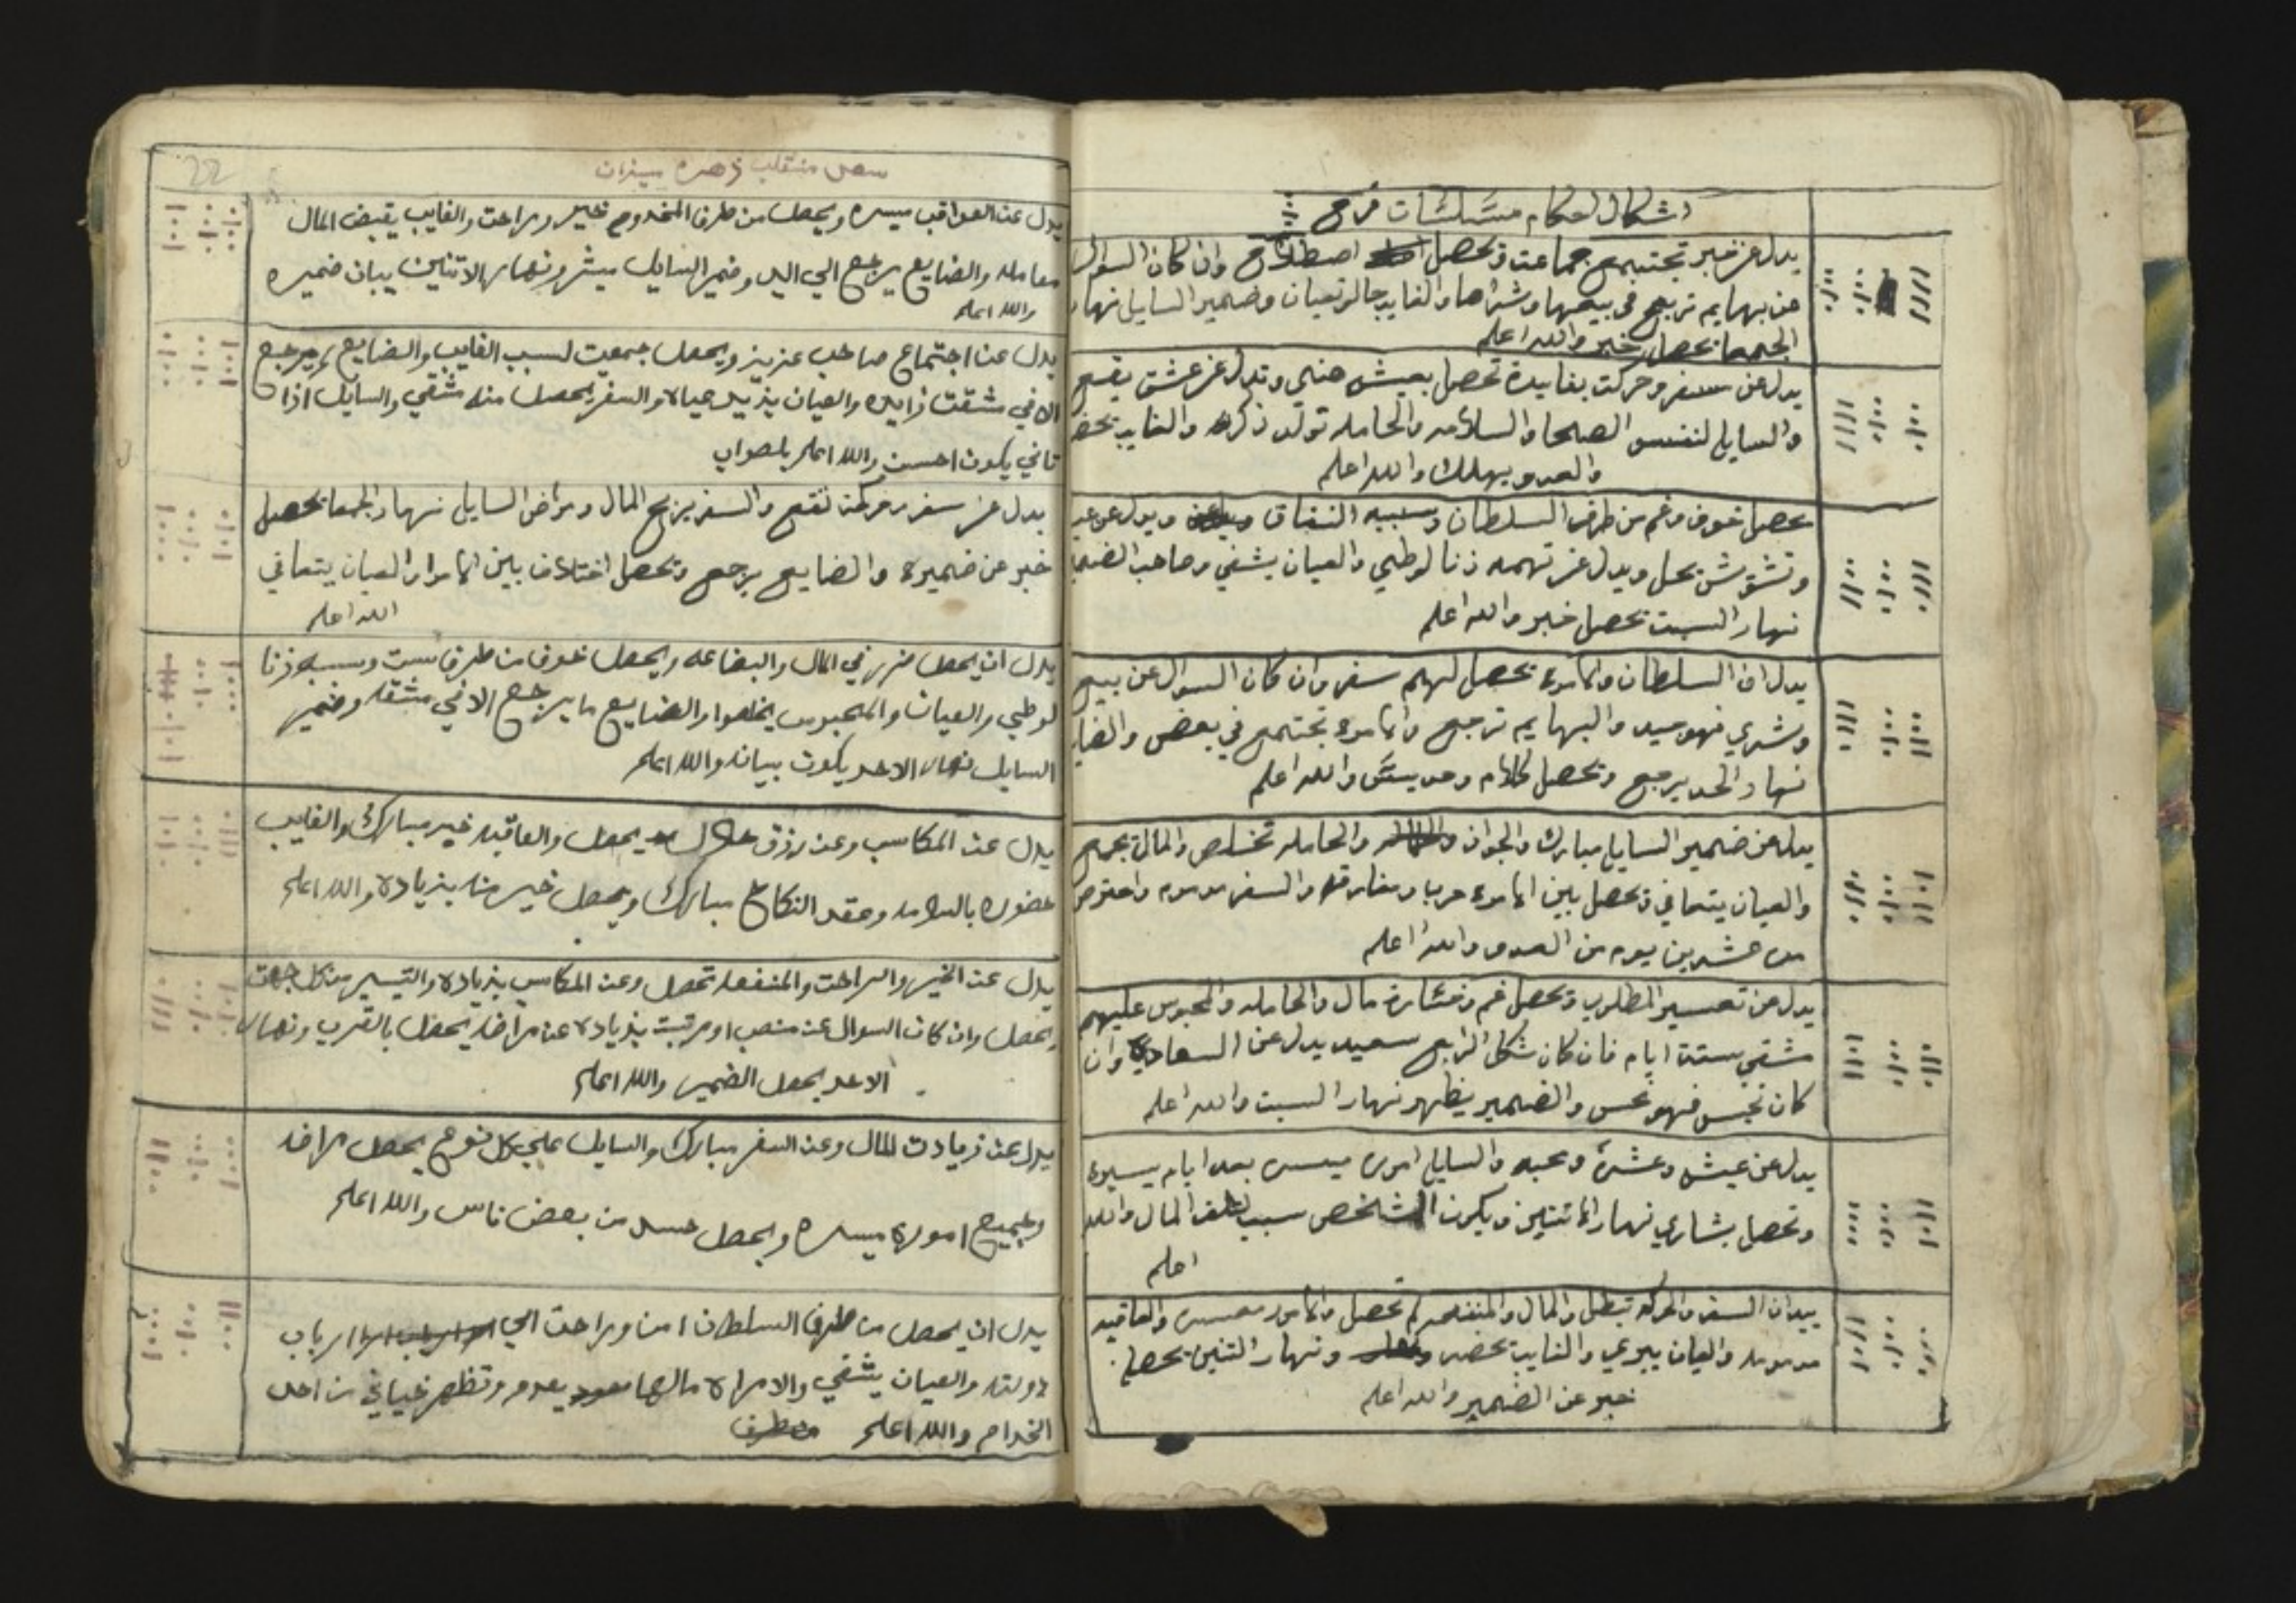 اشكال احكام مثلثات فرح
يدل عن خبر تجتمع جماعت وتحصل اصطلاح وان كان السوال
عن بهايم تربح في بيعها وشراها والغايب حالو تعبان وضمير السايل نهار
الجمعا تحصل خبر والله اعلم
يدل عن سفر وحركت بفايدة تحصل بعيش هني وتدل عن عشق يقع
والسايل لنفسو الصلحا والسلامه والحامله تولد ذكر والغايب تحضر
والعدو يهلك والله اعلم
تحصل خوف وغم من طرف السلطان وسببه النفاق ويدل عن
وتشوش تحل ويدل عن تهمه زنا لوطي والعيان يشفي وصاحب الضمير
نهار السبت تحصل خبر والله اعلم
يدل ان السلطان والامره تحصل لهم سفر وان كان السوال عن بيع
وشري فهو جيد والبهايم تربح والامره تجتمع في بعض والغايب
نهار الحد يرجع وتحصل كلام وحديث والله اعلم
يدل عن ضمير السايل مبارك والجواز والحامله تخلص والمال يجمع
والعيان يتعافي وتحصل بين الامره حرب ومفارقه والسفر مدموم واحترص
من عشرين يوم من العدو والله اعلم
يدل عن تعسير المطلوب وتحصل غم وخسارة مال والحامله والمحبوس عليهم
مشقي ستة ايام فان كان شكل الرابع سعيد يدل عن السعادي وان
كان نحس فهو نحس والضمير يظهر نهار السبت والله اعلم
يدل عن عيش وعشرة ومحبه والسايل امره ميسر بعد ايام يسيره
وتحصل بشاري نهار الاتنين ويكون الشخص سبب تلف المال والله
اعلم
يدل ان السفر والحركه تبطل والمال والمنفعه لم تحصل والامور معسره والعاقبه
مدمومه والعيان يبري والغايب تحضر ونهار التنين تحصل
خبر عن الضمير والله اعلم
22
منقلب زهره ميزان
يدل عن العواقب ميسره ويحصل من طرف المخدوم خير وراحت والغايب يقبض المال
معامله والضايع يرجع الي اليد وضمير السايل ميشر ونهار الاتنين يبان ضميره
والله اعلم
يدل عن اجتماع صاحب عزيز ويحصل جمعيت لسبب الغايب والضايع لم يرجع
الا في مشقت زايده والعيان يزيد عياه والسفر يحصل منه مشقي والسايل اذا
تاني يكون احسن والله اعلم بلصواب
يدل عن سفر وحركت تقع والسفر يربح المال ومراض السايل نهار الجمعا تحصل
خبر عن ضميره والضايع يرجع وتحصل اختلاف بين الامرا والعيان يتعافي
الله اعلم
يدل ان يحصل ضرر في المال والبضاعه ويحصل خوف من طرف ست وسببه زنا
لوطي والعيان والمحبوس يخلصوا والضايع ما يرجع الا في مشقه وضمير
السايل نهار الاحد يكون بيانه والله اعلم
يدل عن المكاسب وعن رزق حلال يحصل والعاقبه خير مبارك والغايب
حضوره بالسلامه وعقد النكاح مبارك ويحصل خير منه بزياده والله اعلم
يدل عن الخير والراحت والمنفعه تحصل وعن المكاسب بزياده والتيسير من كل جهت
يحصل وان كان السوال عن منصب او مرتبت بزياده عن مراضه يحصل بالقرب ونهار
الاحد يحصل الضمير والله اعلم
يدل عن زيادت المال وعن السفر مبارك والسايل علي كل نوع يحصل مراضه
وجميع اموره ميسره ويحصل حسد من بعض ناس والله اعلم
يدل ان يحصل من طرف السلطان امن وراحت الي ارباب
دولته والعيان يشفي والامراه مالها يعدم وتظهر خياني من احد
الخدام والله اعلم